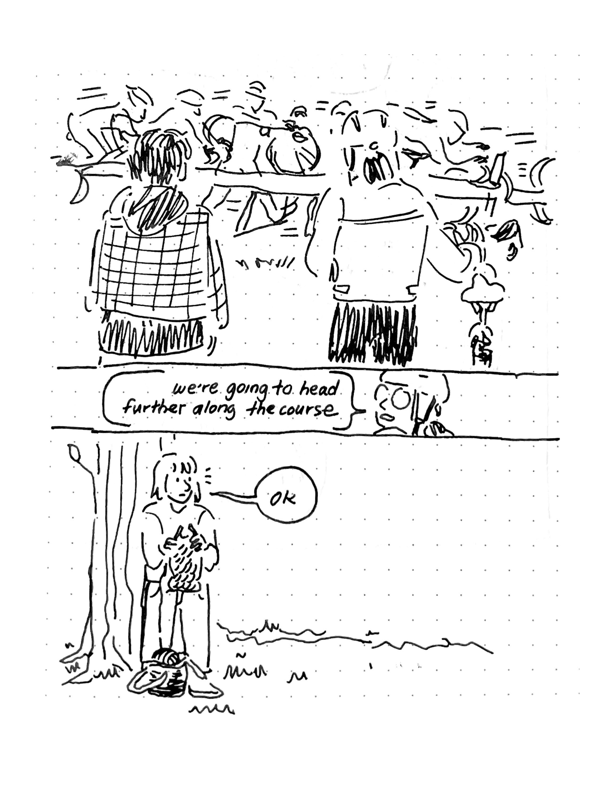 we're going to head
further along the course
OK